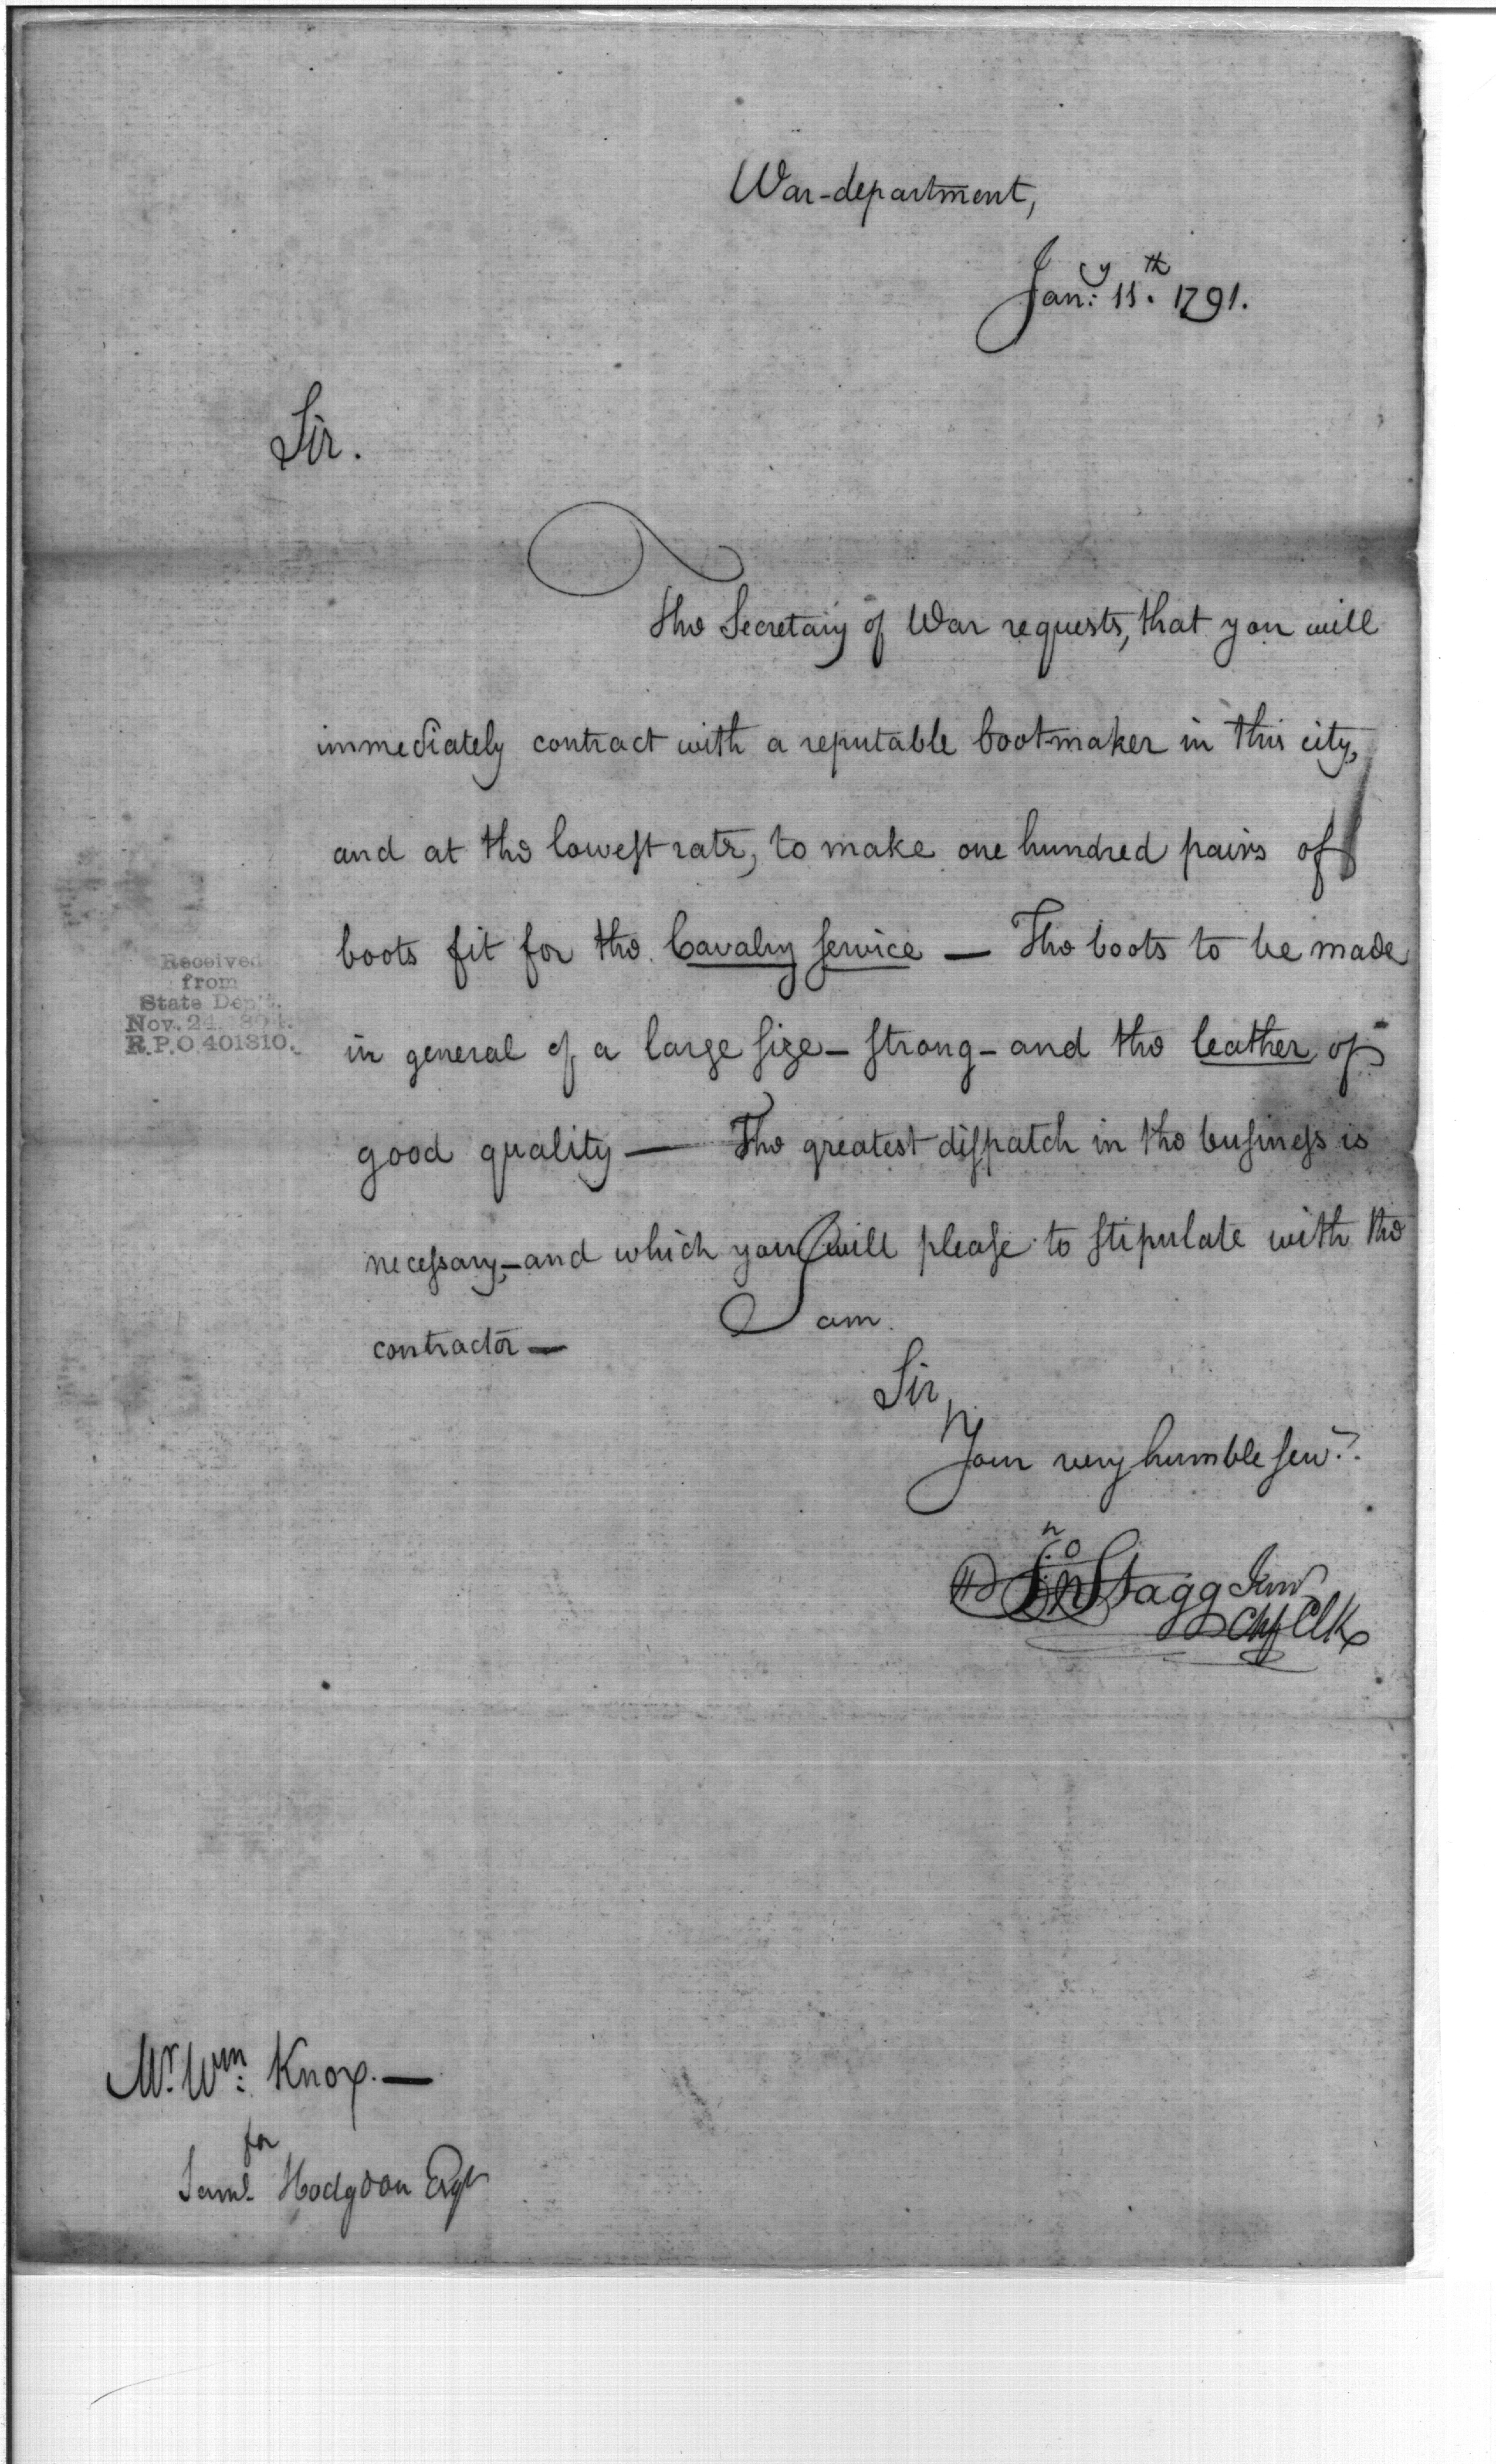 War-department,
Jan:y 11.th 1791.
Sir.
The Secretary of War requests, that you will
immediately contract with a reputable bootmaker in this city,
and at the lowest rate, to make one hundred pairs of
boots fit for the Cavalry service — The boots to be made
in general of a large size – strong – and the leather of
good quality — The greatest dispatch in the business is
necessary, – and which you will please to stipulate with the
contractor —
I am
Sir,
Your very humble serv.t
Jno Stagg Junr
Chf Clk
Received
from
State Dep't.
Nov. 24 1894.
R.P.O. 401810.
Mr. Wm: Knox. —
for
Saml. Hodgdon Esqr